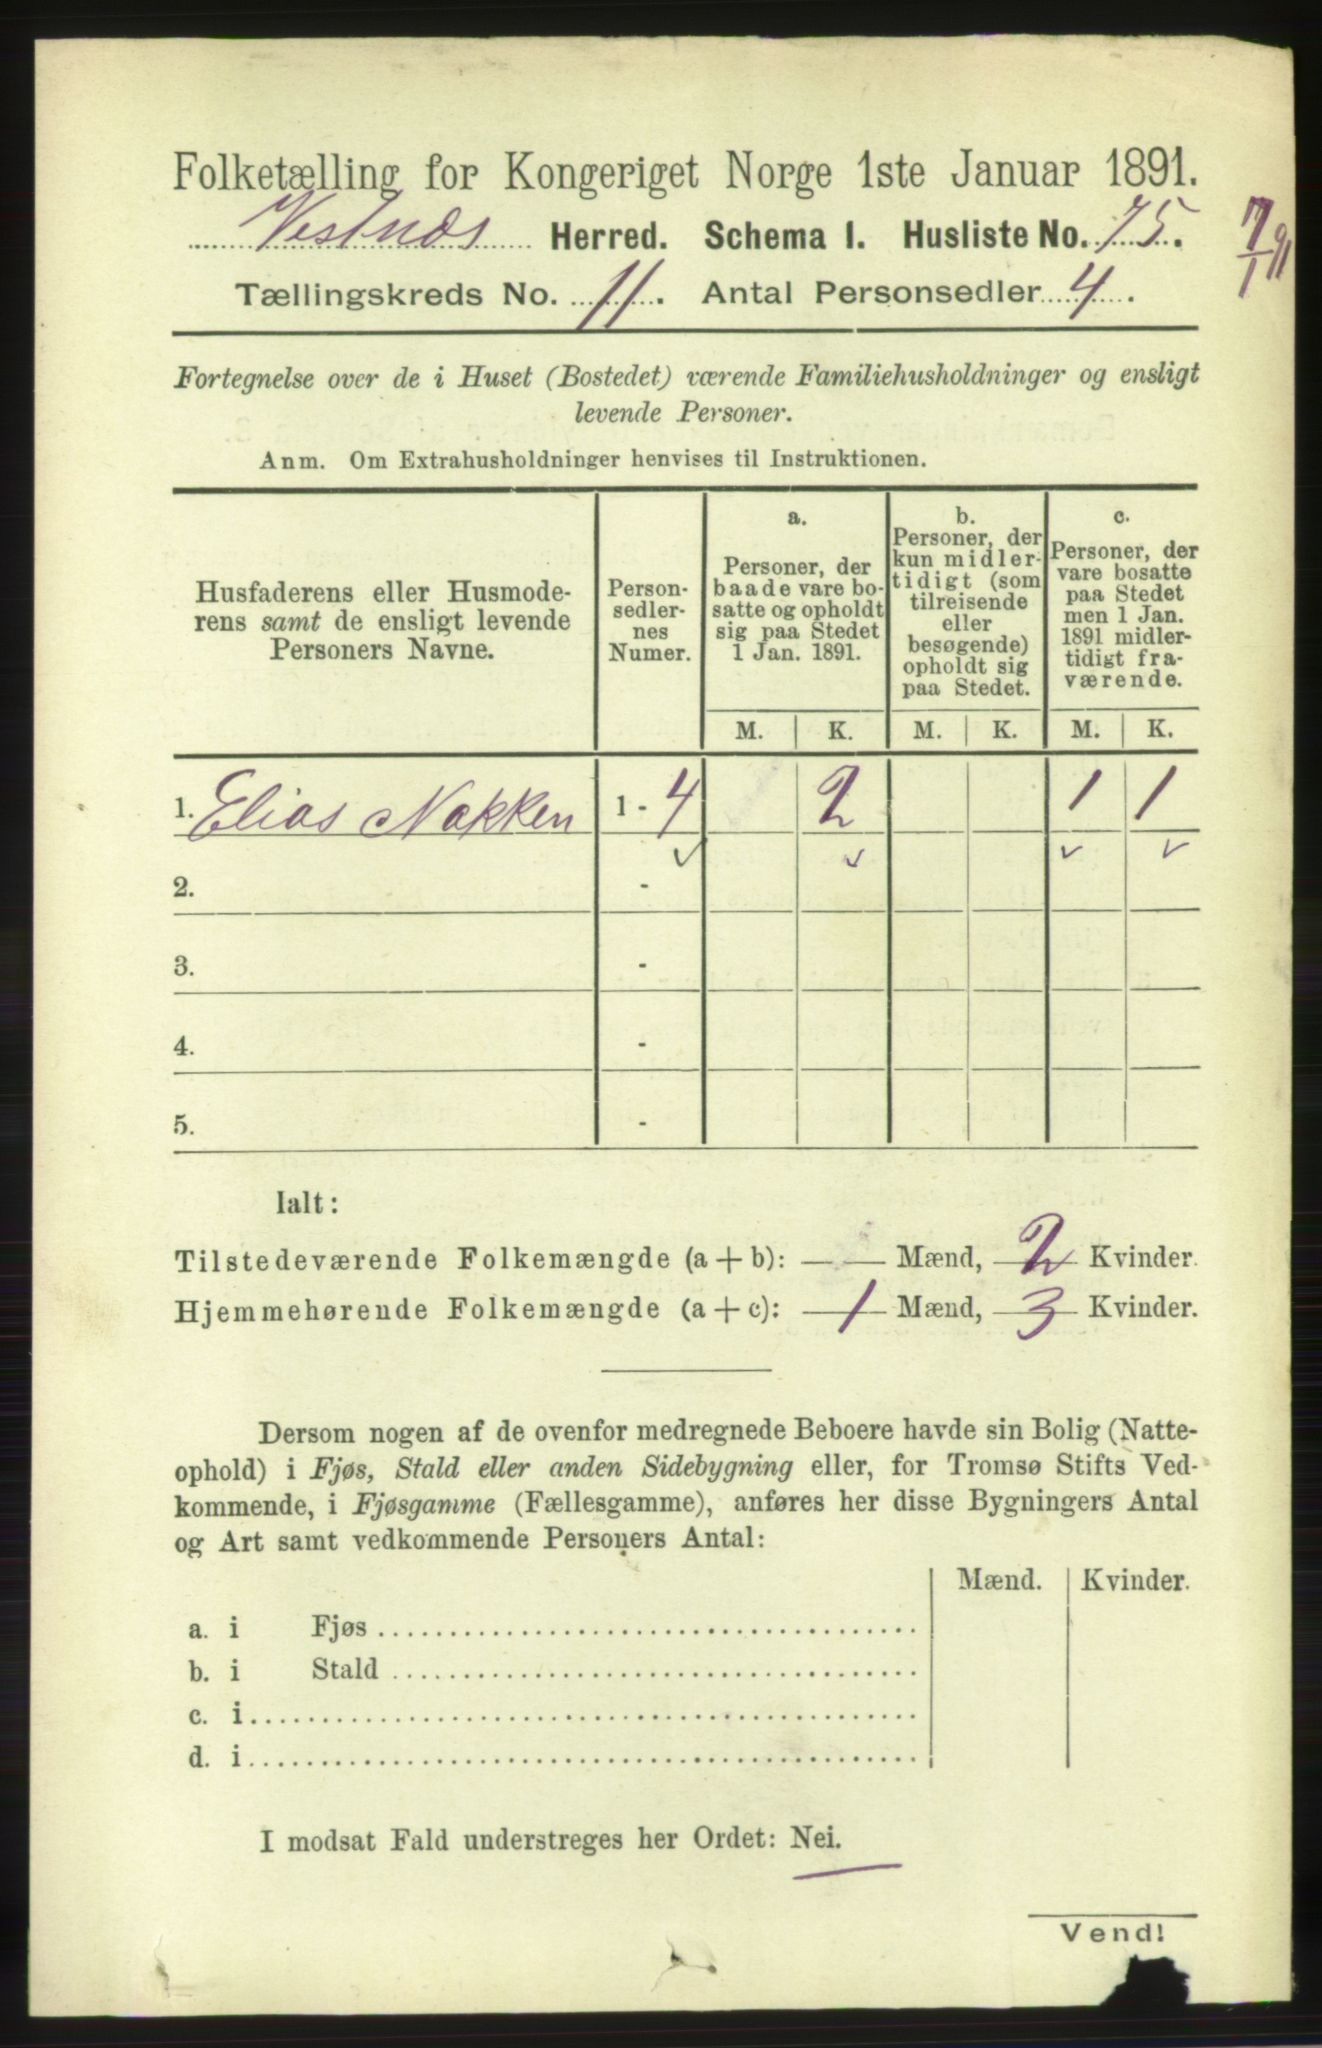 Folketælling for Kongeriget Norge 1ste Januar 1891.
Vestnæs Herred. Schema I. Husliste No. 75.
7/1 91
Tællingskreds No. 11. Antal Personsedler 4.
Fortegnelse over de i Huset (Bostedet) værende Familiehusholdninger og ensligt
levende Personer.
Anm. Om Extrahusholdninger henvises til Instruktionen.
Husfaderens eller Husmode-
rens samt de ensligt levende
Personers Navne.
Person-
sedler-
nes
Numer.
a.
Personer, der
baade vare bo-
satte og opholdt
sig paa Stedet
1 Jan. 1891.
b.
Personer, der
kun midler-
tidigt (som
tilreisende
eller
besøgende)
opholdt sig
paa Stedet.
c.
Personer, der
vare bosatte
paa Stedet
men 1 Jan.
1891 midler-
tidigt fra-
værende.
M. K. M. K. M. K.
1. Elias Nakken 1 - 4 2 1 1
2. -
3. -
4. -
5. -
Ialt:
Tilstedeværende Folkemængde (a + b): — — Mænd, 2 Kvinder.
Hjemmehørende Folkemængde (a + c): 1 Mænd, 3 Kvinder.
Dersom nogen af de ovenfor medregnede Beboere havde sin Bolig (Natte-
ophold) i Fjøs, Stald eller anden Sidebygning eller, for Tromsø Stifts Ved-
kommende, i Fjøsgamme (Fællesgamme), anføres her disse Bygningers Antal
og Art samt vedkommende Personers Antal:
Mænd. Kvinder.
a. i Fjøs
b. i Stald
c. i
d. i
I modsat Fald understreges her Ordet: Nei.
Vend!